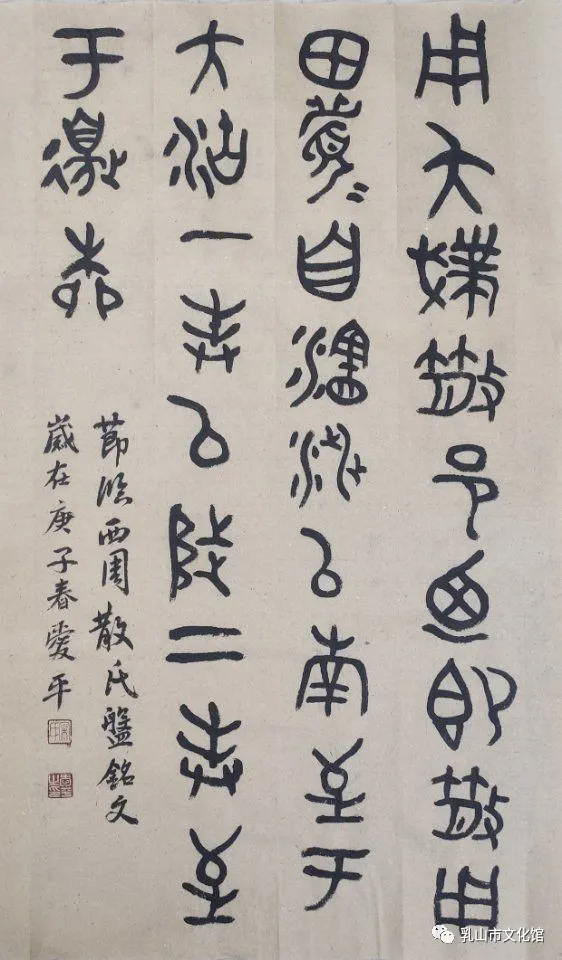 用夨撲散邑迺即散用
田眉自瀗涉以南至于
大沽一封以陟二封至
于邊柳
節臨西周散氏盤銘文
歲在庚子春愛平
乳山市文化馆